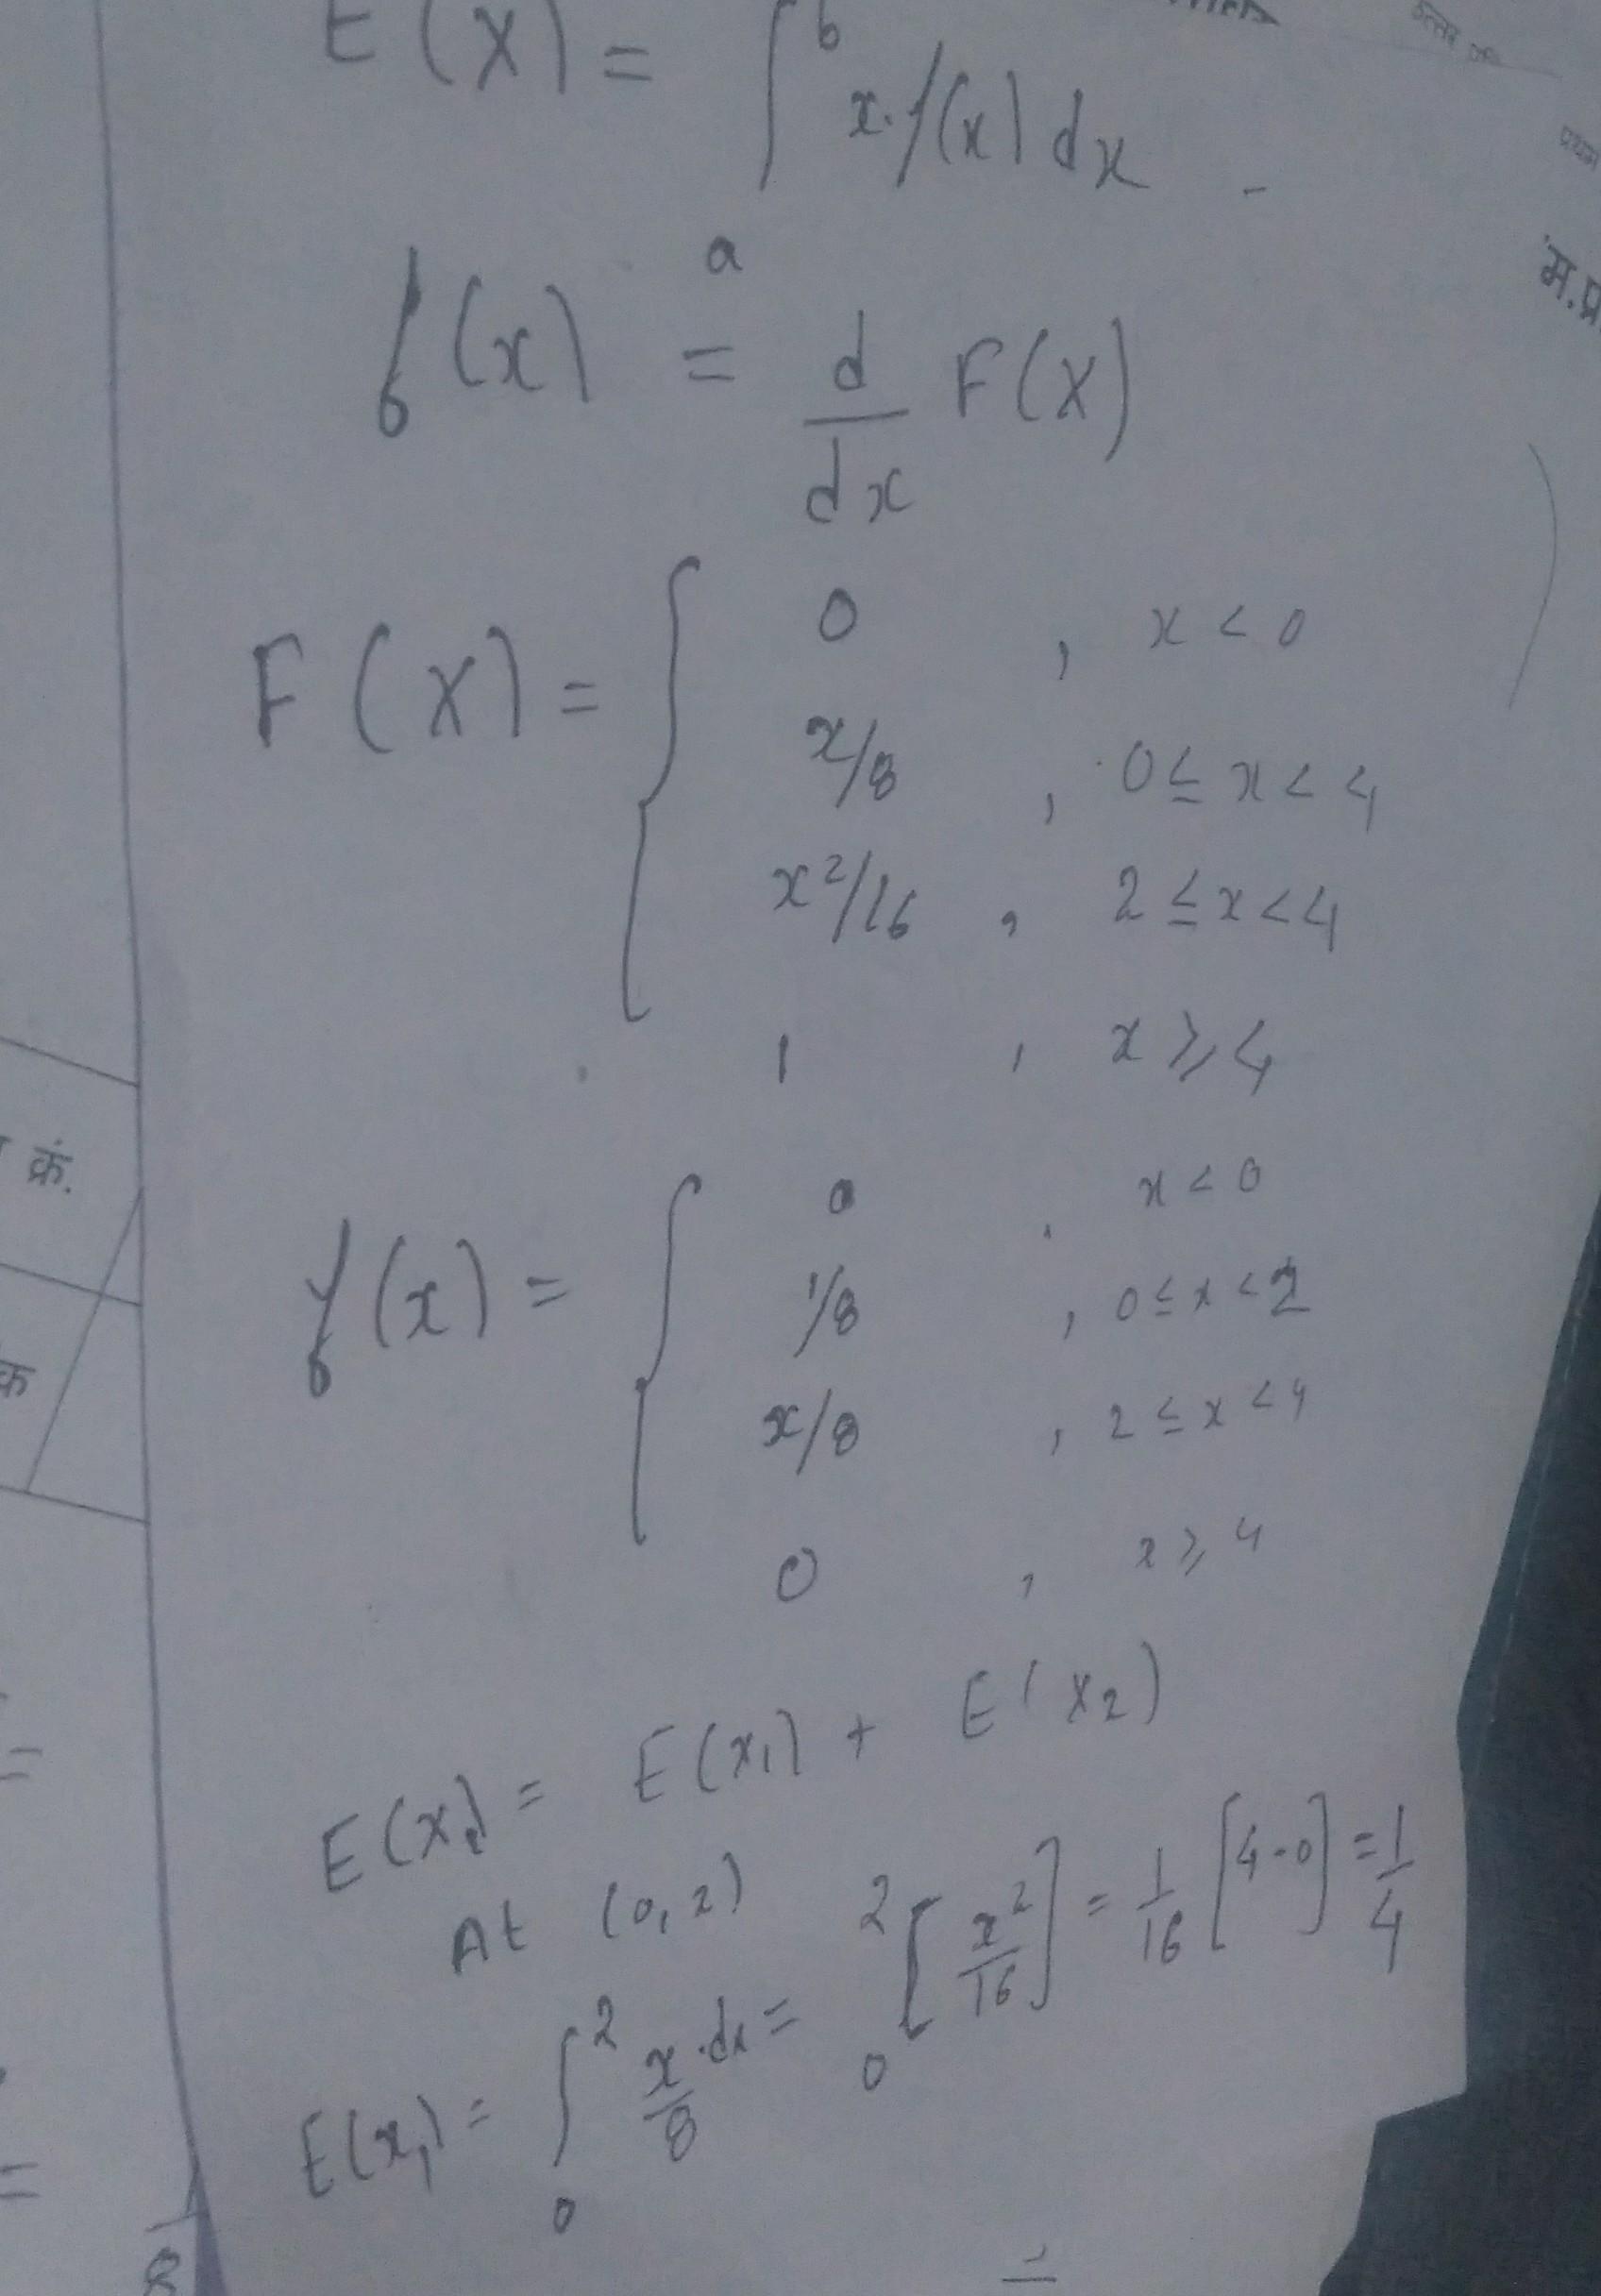 E(X) = ∫ₐᵇ x.f(x) dx
f(x) = d/dx F(X)
F(X) = { 0 , x < 0
x/8 , 0 ≤ x < 4
x²/16 , 2 ≤ x < 4
1 , x ≥ 4
f(x) = { 0 , x < 0
1/8 , 0 ≤ x < 2
x/8 , 2 ≤ x < 4
0 , x ≥ 4
E(X) = E(x₁) + E(x₂)
At (0,2)
E(x₁) = ∫₀² x/8 .dx = ₀²[x²/16] = 1/16 [4-0] = 1/4
म.प्र
क्रं.
क
=
=
1/8